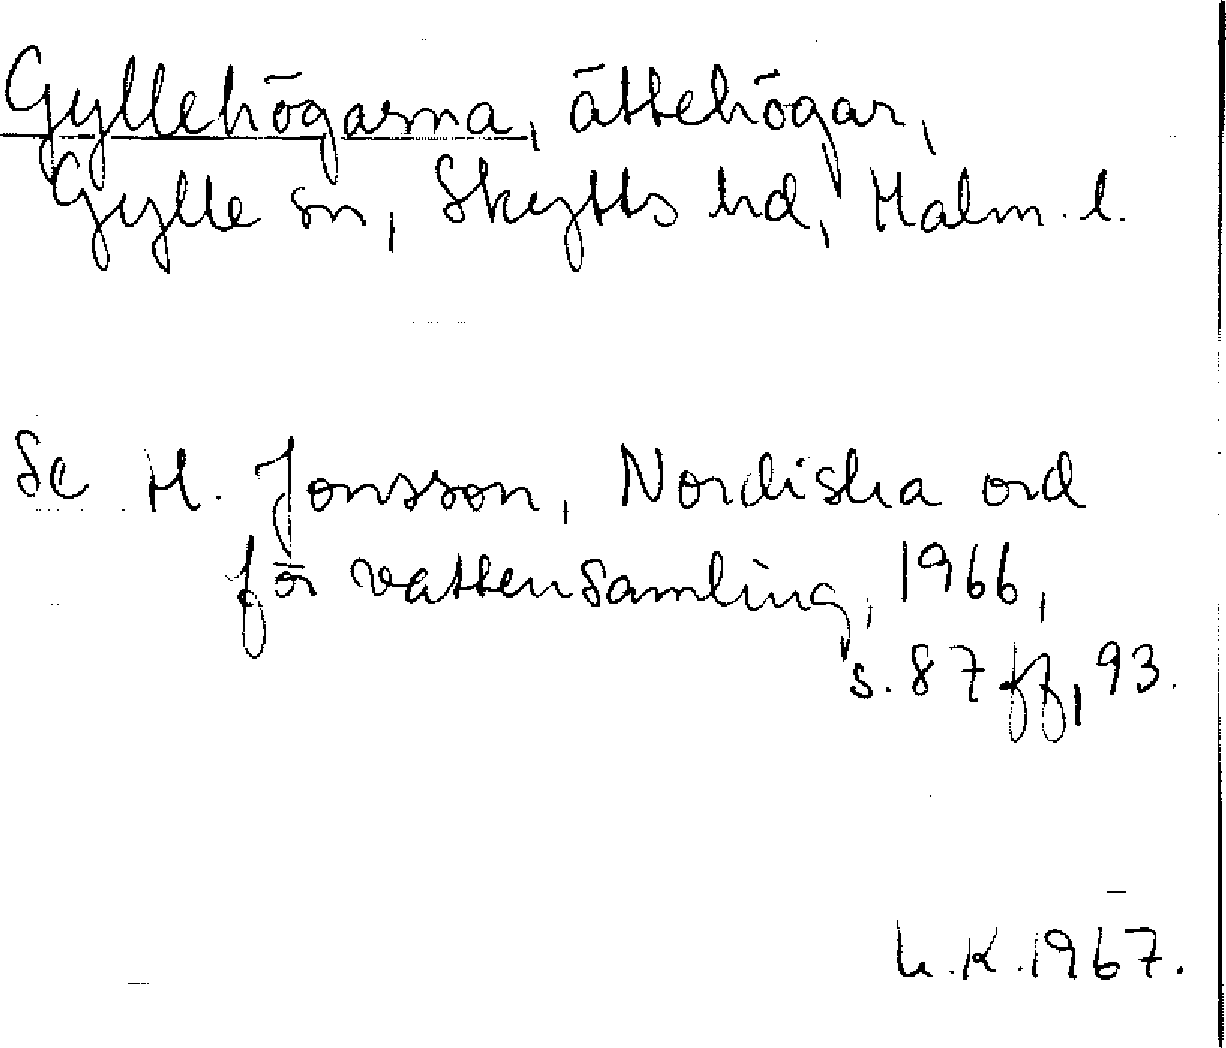 Gyllehögarna, ättehögar,
Gylle sn, Skytts hd, Malm. l.
Se H. Jonsson, Nordiska ord
för vattensamling, 1966,
s. 87 ff, 93.
L.K. 1967.